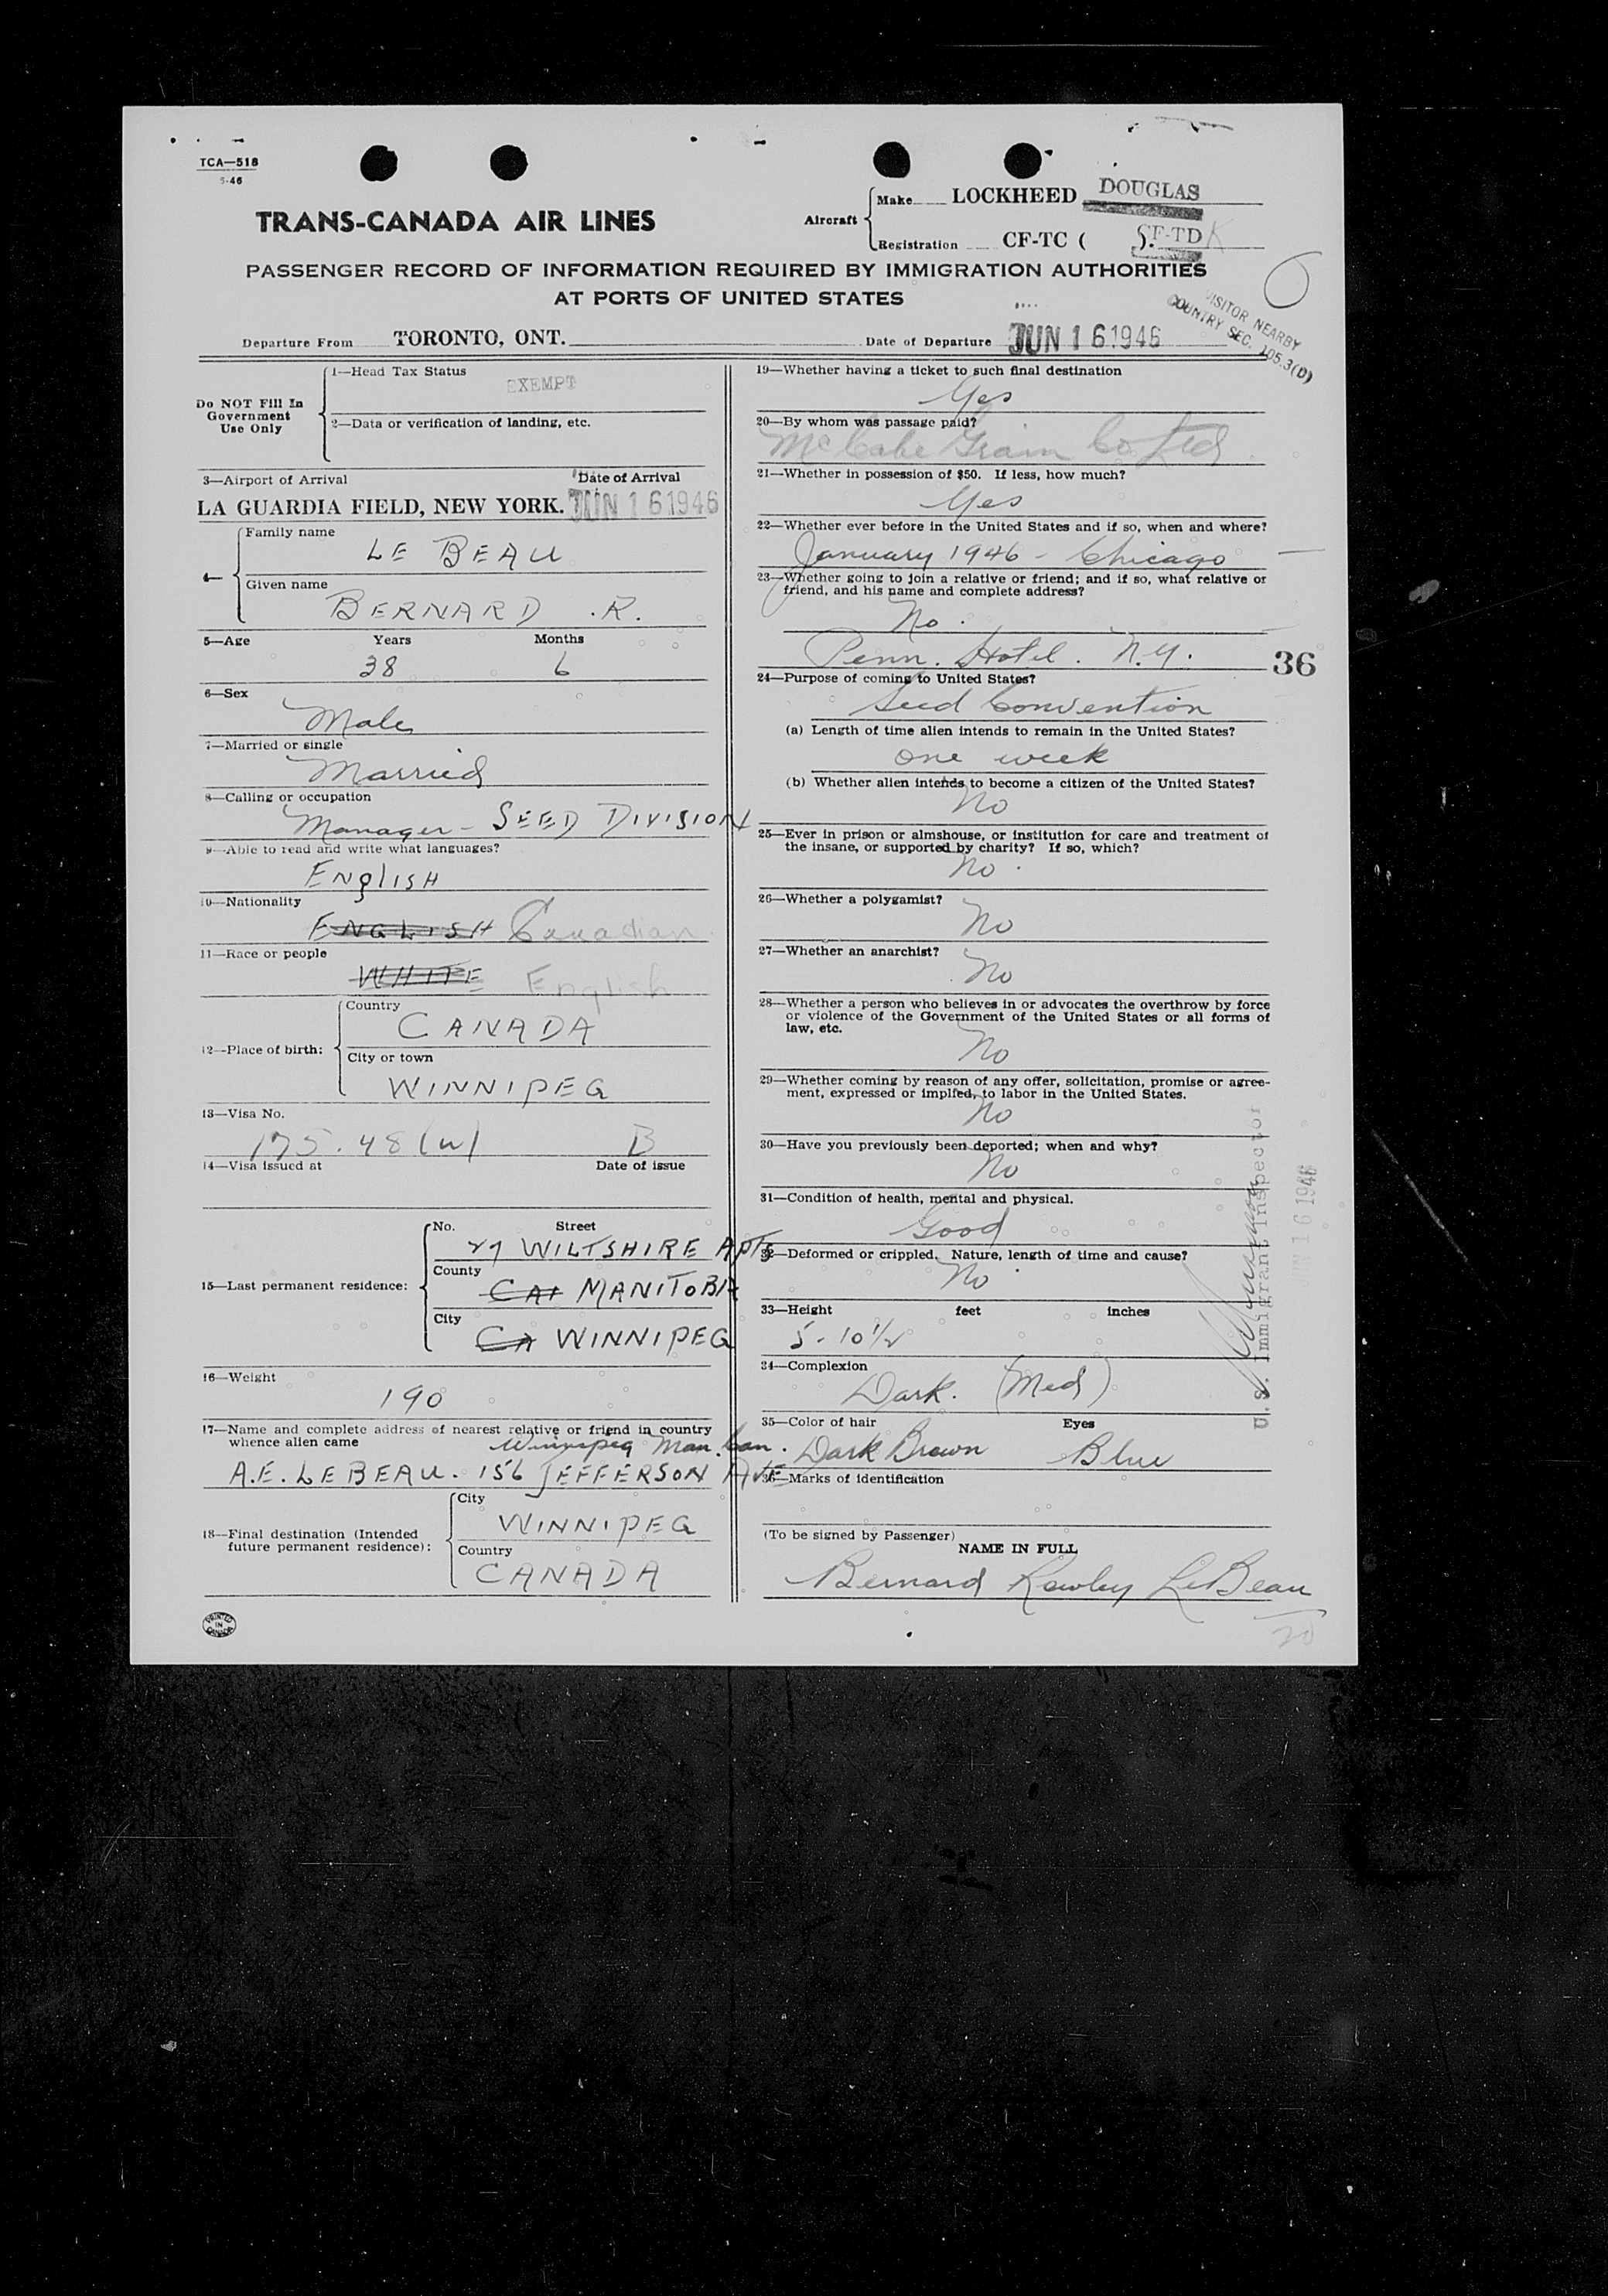 TCA—518
5-46
TRANS-CANADA AIR LINES
Aircraft
Make LOCKHEED DOUGLAS
Registration CF-TC ( ). CF-TD K
PASSENGER RECORD OF INFORMATION REQUIRED BY IMMIGRATION AUTHORITIES
AT PORTS OF UNITED STATES
VISITOR NEARBY
COUNTRY SEC. 105.3(D)
Departure From TORONTO, ONT. Date of Departure JUN 16 1946
Do NOT Fill In
Government
Use Only
1—Head Tax Status
EXEMPT
2—Data or verification of landing, etc.
3—Airport of Arrival Date of Arrival
LA GUARDIA FIELD, NEW YORK. JUN 16 1946
4—
Family name
LE BEAU
Given name
BERNARD .R.
5—Age Years Months
38 6
6—Sex
Male
7—Married or single
Married
8—Calling or occupation
Manager - SEED DIVISION
9—Able to read and write what languages?
ENglISH
10—Nationality
ENGLISH Canadian
11—Race or people
WHITE English
12—Place of birth:
Country
CANADA
City or town
WINNIPEG
13—Visa No.
175.48 (w) B
14—Visa issued at Date of issue
15—Last permanent residence:
No. Street
27 WILTSHIRE APTS
County
CAN MANITOBA
City
CA WINNIPEG
16—Weight
190
17—Name and complete address of nearest relative or friend in country
whence alien came
Winnipeg Man. Can.
A.E. LEBEAU. 156 JEFFERSON AVE
18—Final destination (Intended
future permanent residence):
City
WINNIPEG
Country
CANADA
PRINTED
IN
CANADA
19—Whether having a ticket to such final destination
Yes
20—By whom was passage paid?
McCabe Grain Co Ltd
21—Whether in possession of $50. If less, how much?
Yes
22—Whether ever before in the United States and if so, when and where?
January 1946 - Chicago
23—Whether going to join a relative or friend; and if so, what relative or
friend, and his name and complete address?
No.
Penn. Hotel. N.Y.
36
24—Purpose of coming to United States?
Seed Convention
(a) Length of time alien intends to remain in the United States?
one week
(b) Whether alien intends to become a citizen of the United States?
No
25—Ever in prison or almshouse, or institution for care and treatment of
the insane, or supported by charity? If so, which?
No.
26—Whether a polygamist?
No
27—Whether an anarchist?
No
28—Whether a person who believes in or advocates the overthrow by force
or violence of the Government of the United States or all forms of
law, etc.
No
29—Whether coming by reason of any offer, solicitation, promise or agree-
ment, expressed or implied, to labor in the United States.
No
30—Have you previously been deported; when and why?
No
31—Condition of health, mental and physical.
Good
32—Deformed or crippled. Nature, length of time and cause?
No
33—Height feet inches
5 - 10 1/2
34—Complexion
Dark. (Med)
35—Color of hair Eyes
Dark Brown Blue
36—Marks of identification
(To be signed by Passenger)
NAME IN FULL
Bernard Rowley LeBeau
20
U. S. Immigrant Inspector
JUN 16 1946